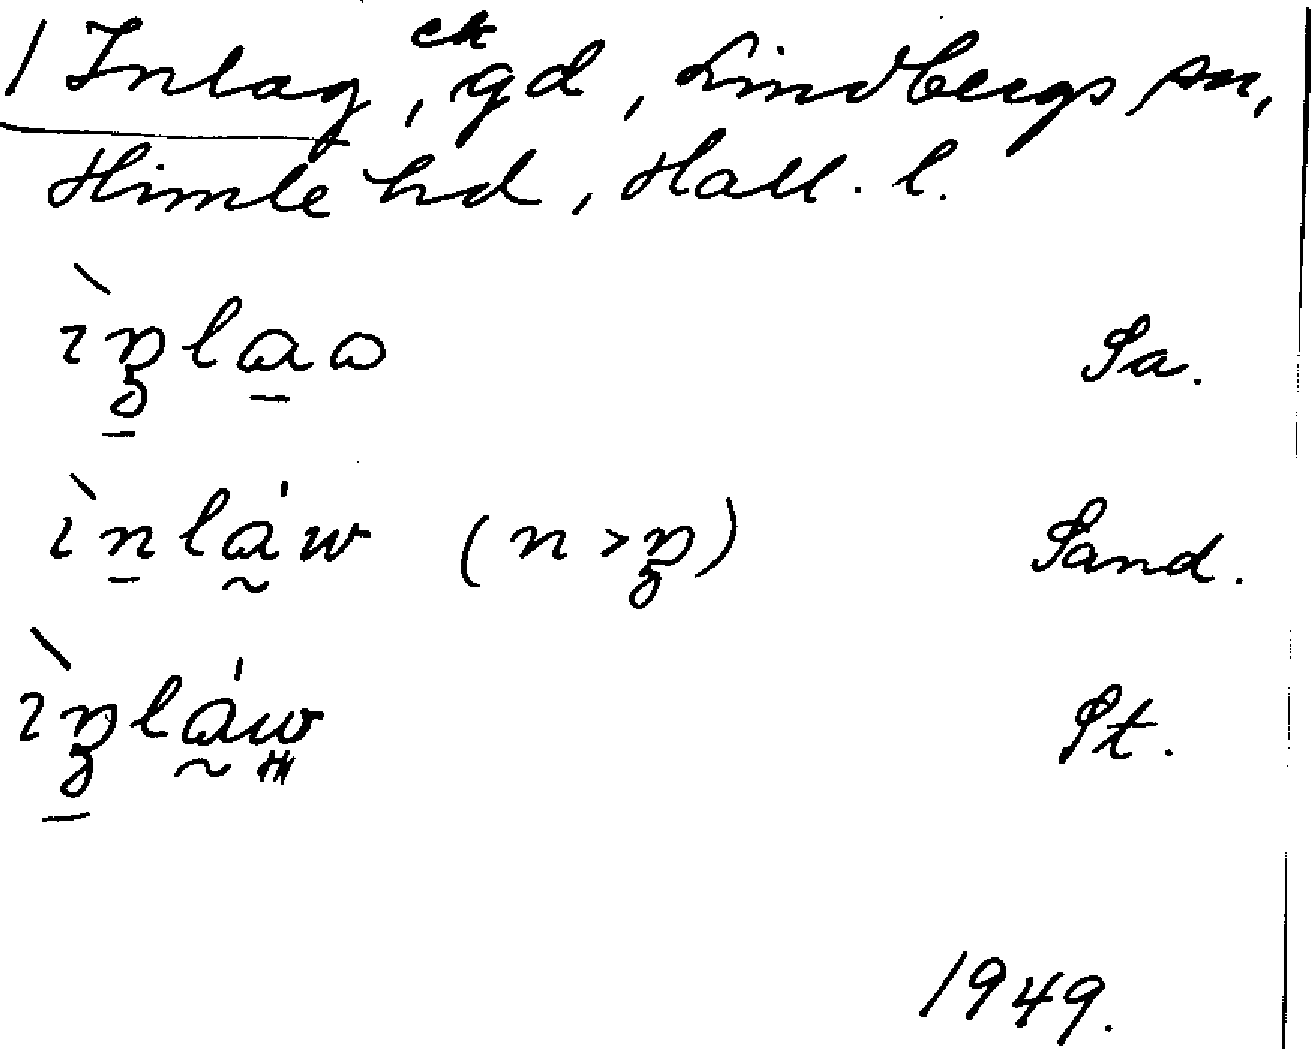 1 Inlag, ck gd, Lindbergs sn,
Himle hd, Hall. l.
ìn̠la̠ɷ Sa.
ìn̠lá̰w (n > n̥) Sand.
ìn̠lá̰w St.
1949.